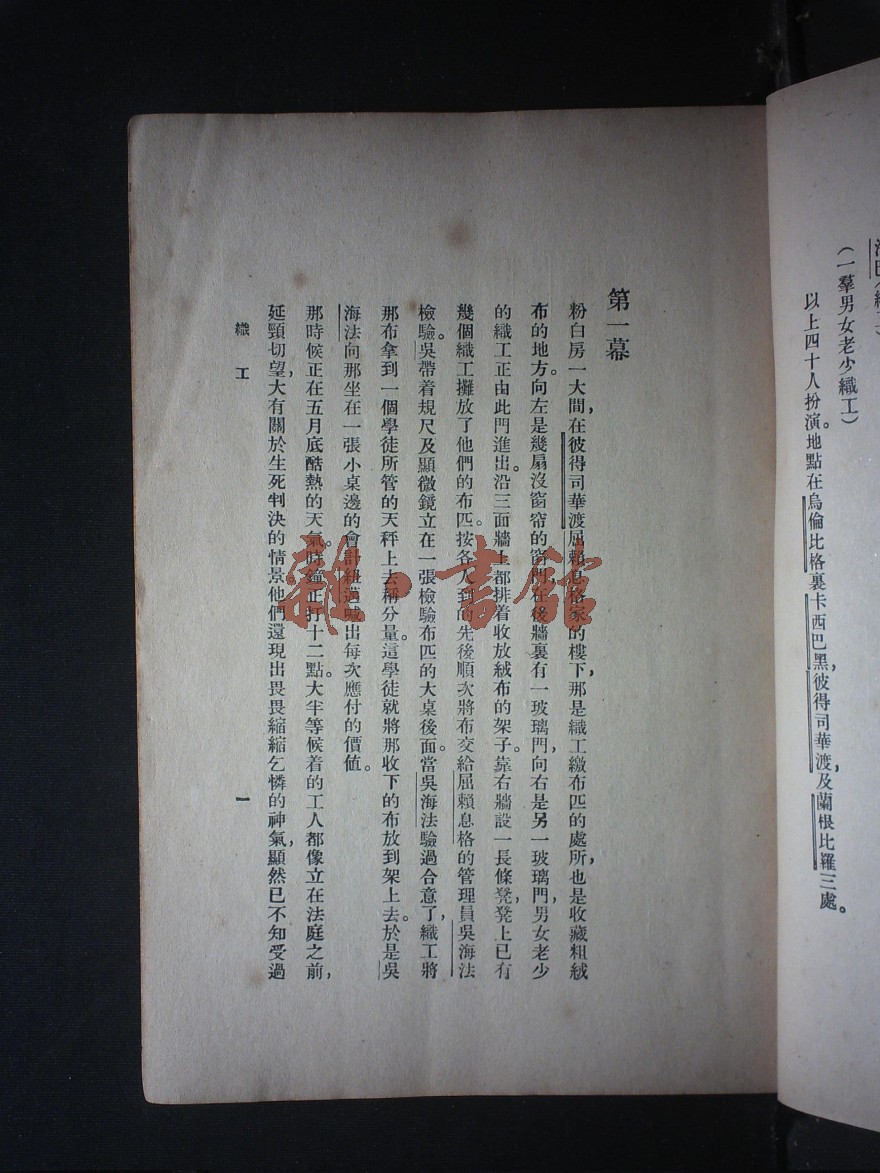 海巴(織工)
(一羣男女老少織工)
以上四十人扮演。地點在烏倫比格裏卡西巴黑,彼得司華渡,及蘭根比羅三處。
第一幕
粉白房一大間,在彼得司華渡屈賴息格家的樓下,那是織工繳布匹的處所,也是收藏粗絨
布的地方。向左是幾扇沒窗帘的窗門,在後牆裏有一玻璃門,向右是另一玻璃門,男女老少
的織工正由此門進出。沿三面牆上都排着收放絨布的架子。靠右牆設一長條凳,凳上已有
幾個織工攤放了他們的布匹。按各人到的先後順次將布交給屈賴息格的管理員吳海法
檢驗。吳帶着規尺及顯微鏡立在一張檢驗布匹的大桌後面。當吳海法驗過合意了,織工將
那布拿到一個學徒所管的天秤上去稱分量。這學徒就將那收下的布放到架上去。於是吳
海法向那坐在一張小桌邊的會計紐邁喊出每次應付的價值。
那時候正在五月底酷熱的天氣。時鐘正打十二點。大半等候着的工人都像立在法庭之前,
延頸切望,大有關於生死判決的情景他們還現出畏畏縮縮乞憐的神氣,顯然已不知受過
織工
一
雜·書館